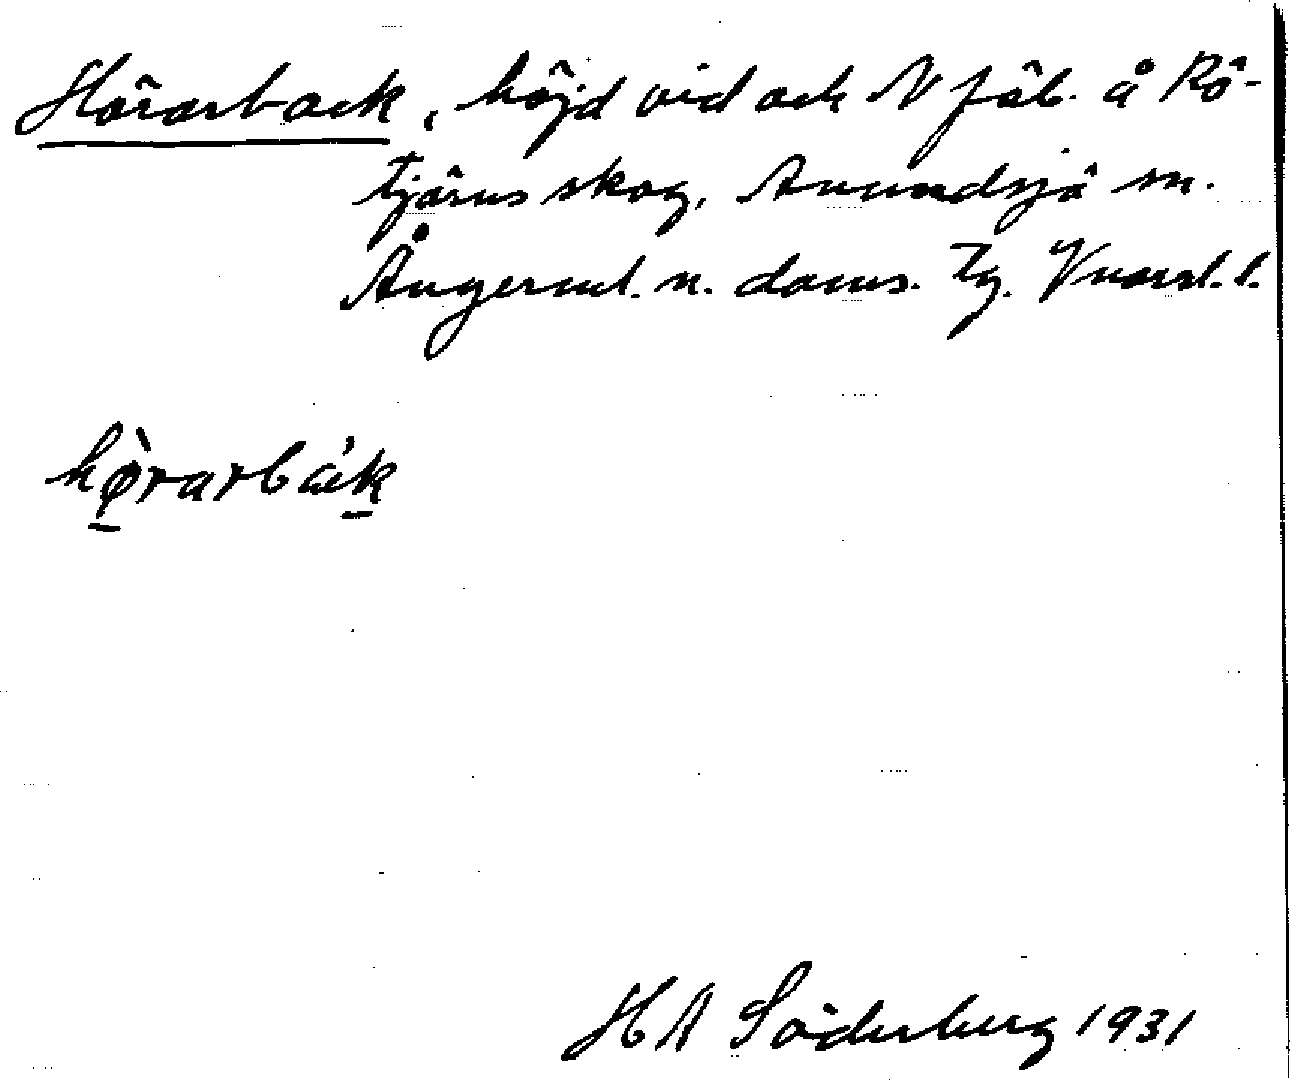 Hörarback, höjd vid och N fäb. å Rö-
tjärns skog, Anundsjö sn.
Ångerml. n. doms.
hö̀rarbák
HA Söderberg 1931